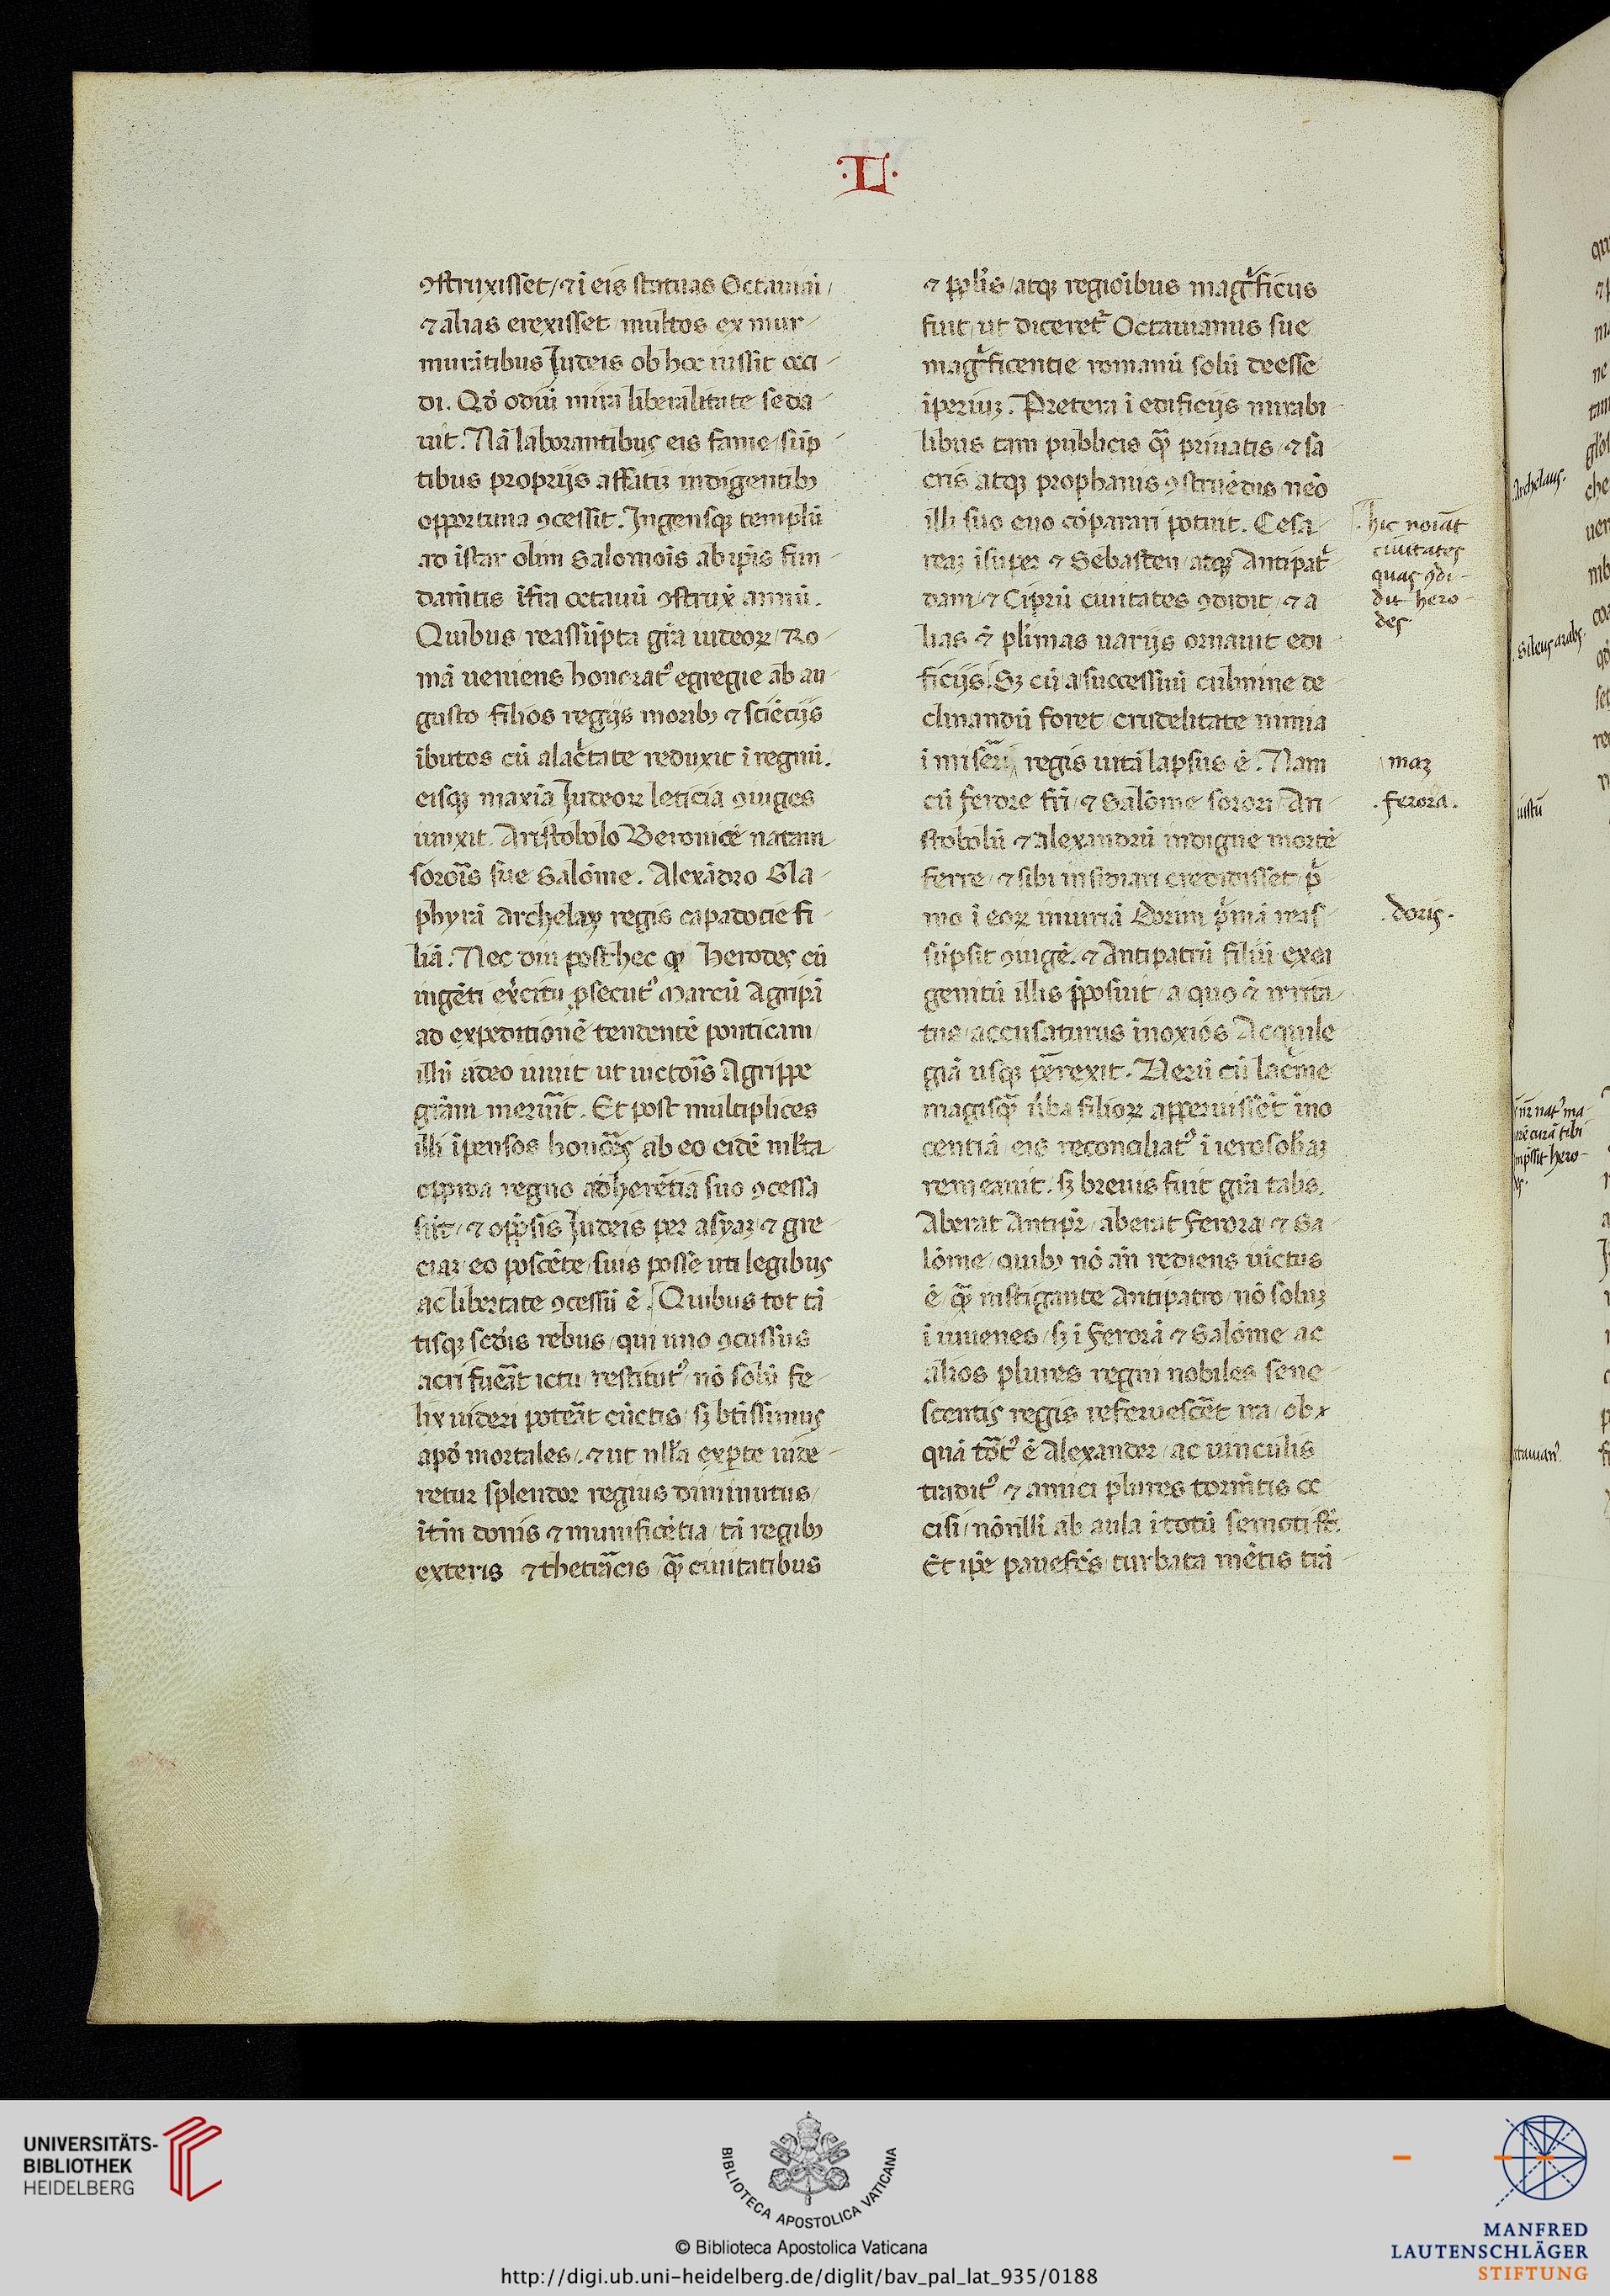 ·L·
ꝯstruxisset / ⁊ ī eis statuas Octauiāi /
⁊ alias erexisset / multos ex mur-
murātibus Judeis ob hoc iussit occi-
di. Qđ odiū mira liberalitate seda-
uit. Nā laborantibus eis fame / sūp-
tibus proprijs affatī indigentibꝫ
opportuna ꝯcessit. Ingensqꝫ templū
ad īstar olim Salomōis ab ip̄is fun-
dam̄tis īfra octauū ꝯstrux̄ annū.
Quibus / reassūpta gr̄a iudeoꝝ / Ro-
mā ueniens honorat᾽ egregie ab au-
gusto filios regijs moribꝫ ⁊ sciētijs
ībutos cū alac̄tate reduxit ī regnū.
eisqꝫ maxīa Judeoꝝ leticia ꝯiuges
iunxit. Aristobolo Beronicē natam
soror̄is sue Salōme. Alexādro Gla-
phyrā Archelay regis capadocie fi-
liā. Nec diu post hec Herodes cū
ingēti ex̄citu ꝓsecut᾽ Marcū Agripā
ad expeditionē tendentē ponticam /
illū adeo iuuit ut uictor̄is Agrippe
gr̄am meruit̄. Et post multiplices
illi īpensos honor̄es ab eo eidē mlt̄a
oppida regno adherētia suo ꝯcessa
sūt / ⁊ opp̄sis Judeis per asyaꝫ ⁊ gre-
ciaꝫ / eo poscēte / suis posse uti legibus
ac libertate ꝯcessū ē. Quibus tot tā-
tisqꝫ scd̄is rebus / qui uno ꝯcussus
acri fuēat ictu / restitut᾽ nō solū fe-
lix uideri potēat cūctis / sꝫ btissimus
apđ mortales / . ⁊ ut nlla exꝑte uide-
retur splendor regius diminutus /
itm̄ donis ⁊ munificētia / tā regibꝫ
exteris ⁊ thetrācis / qꝫ ciuitatibus
⁊ ppl̄is / atqꝫ regiōibus magᷓficus
fuit / ut diceret᾽ Octauianus sue
magᷓficentie romanū solū deesse
īperiuꝫ. Preterea ī edificijs mirabi-
libus tam publicis qꝫ priuatis / ⁊ sa
cris atqꝫ prophanis ꝯstruēdis nēo
illi suo euo cōparari potuit. Cesa-
reaꝫ īsuper ⁊ Sebasten / atqꝫ Antipat-
dam / ⁊ Ciprū ciuitates ꝯdidit / ⁊ a
lias ⁊ plīmas uarijs ornauit edi
ficijs. Sꝫ cū a successuū culmine de
clinandū foret / crudelitate nimia
ī miser̄ā regis uitā lapsus ē. Nam
cū ferore fr̄i / ⁊ Salōme sorori / Ari-
stobolū ⁊ alexandrū indigne mortē
ferre / ⁊ sibi insidiari credidisset / p̄-
mo ī eoꝝ iniuriā Dorim p̄mā reas-
sūpsit ꝯiugē. ⁊ Antipatrū filiū ex ei
genitū illis p̄posuit / a quo ⁊ irrita-
tus / accusaturus īnoxios Acquile
giā usqꝫ perrexit. Uerū cū lac̄me
magisqꝫ ūba filioꝝ apperuissēt īno
centiā eis reconciliat᾽ ī ierosolīaꝫ
remeauit. sꝫ breuis fuit gr̄a talis.
Aberat Antip̄r / aberat ferora / ⁊ Sa-
lōme / quibꝫ nō an̄ rediens uictus
ē / qꝫ instigante Antipatro / nō soluꝫ
ī iuuenes / sꝫ ī ferorā ⁊ Salōme ac
alios plures regni nobiles sene-
scentis regis referuescēt ira / ob
quā tōt᾽ ē Alexander / ac uinculis
tradit᾽ ⁊ amici plures torm̄tis oc
cisi / nōnlli ab aula ī totū semoti st̄.
Et ip̄e pauefc̄s turbata mētis trā-
hic noiāt
ciuitates
quas ꝯdi-
dit hero-
des
maꝫ
.ferora.
.doris.
Archelaus.
Sileus arabs.
UNIVERSITÄTS-
BIBLIOTHEK
HEIDELBERG
BIBLIOTECA APOSTOLICA VATICANA
© Biblioteca Apostolica Vaticana
http://digi.ub.uni-heidelberg.de/diglit/bav_pal_lat_935/0188
MANFRED
LAUTENSCHLÄGER
STIFTUNG